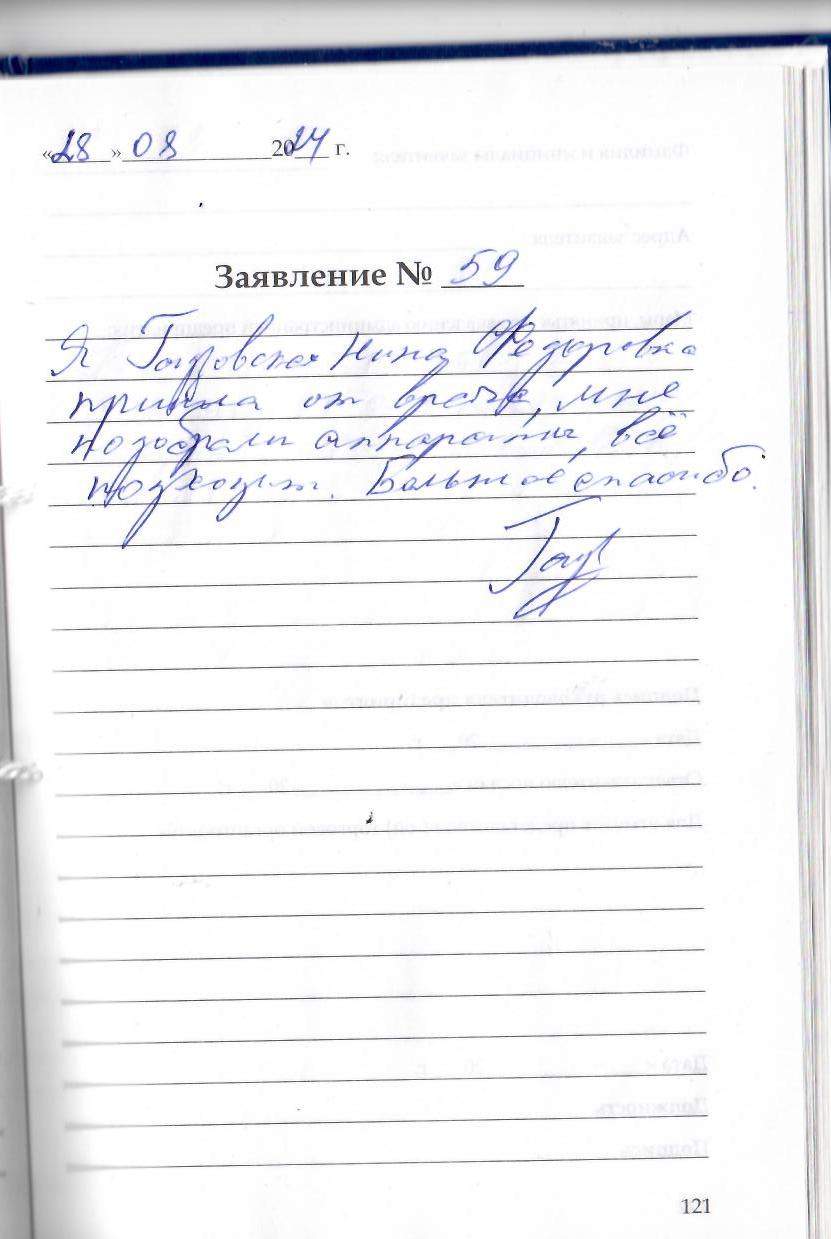 «28» 08 2024 г.
Заявление № 59
Я Нина Федоровна
пришла от врача, мне
подобрали аппараты, всё
подходит. Большое спасибо.
121